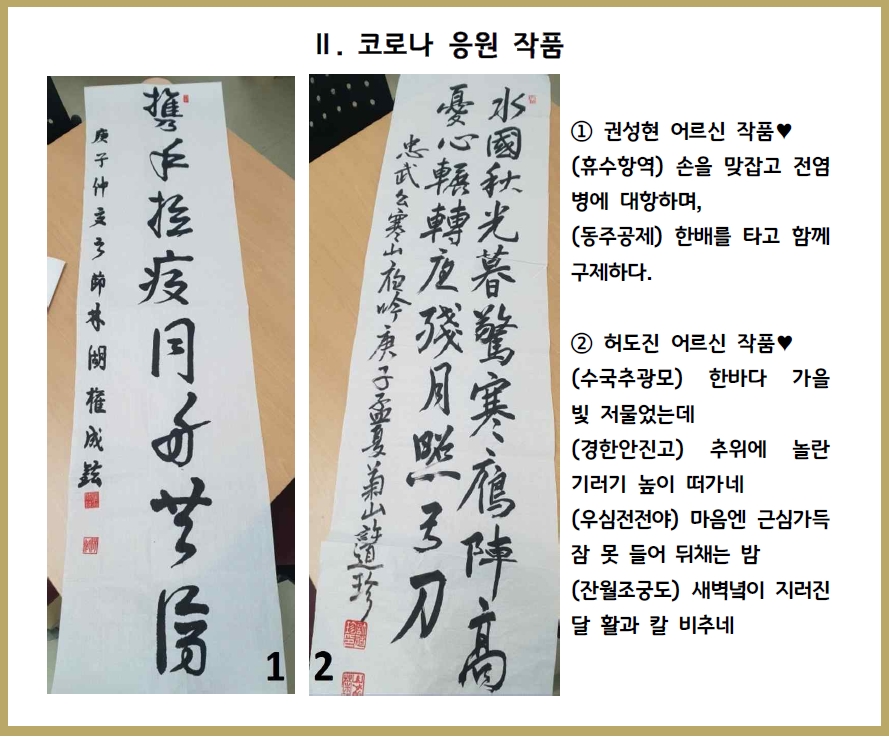 Ⅱ. 코로나 응원 작품
携手抗疫同舟共濟
庚子仲夏之節 林湖 權成鉉
1
水國秋光暮驚寒鴈陣高
憂心輾轉夜殘月照弓刀
忠武公寒山夜吟 庚子孟夏 菊山 許道珍
2
① 권성현 어르신 작품♥
(휴수항역) 손을 맞잡고 전염
병에 대항하며,
(동주공제) 한배를 타고 함께
구제하다.
② 허도진 어르신 작품♥
(수국추광모) 한바다 가을
빛 저물었는데
(경한안진고) 추위에 놀란
기러기 높이 떠가네
(우심전전야) 마음엔 근심가득
잠 못 들어 뒤채는 밤
(잔월조궁도) 새벽녘이 지러진
달 활과 칼 비추네